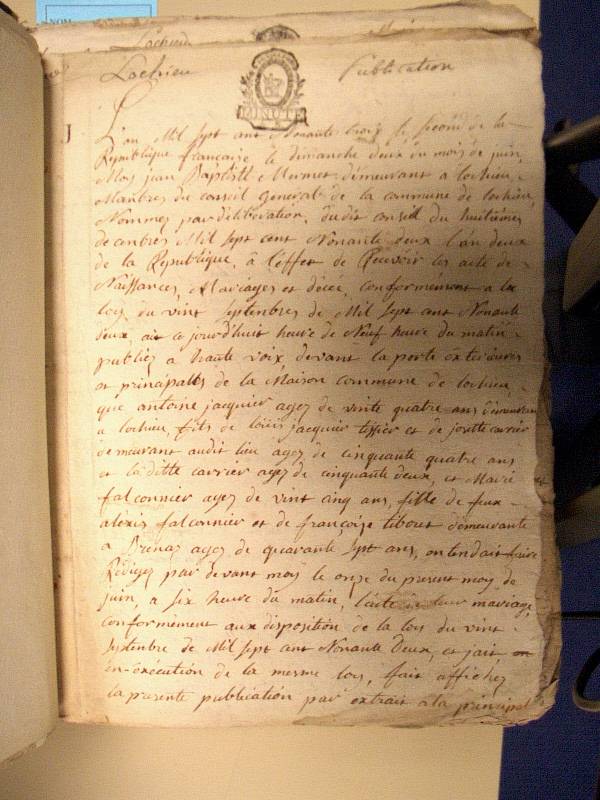 NOM
Lochieu
Lochieu Publication
MINUTE
L'an Mil sept cent Nonante trois le second de la
Republique française, le dimanche deux du mois de juin,
Moy jean Baptiste Mermet demeurant a lochieu,
Manbres du conseil general de la commune de lochieu,
Nommez par deliberation, dudit conseil du huitieme
decenbres Mil sept cent Nonante deux l'an deux
de la Republique, à l'effet de Recevoir les acte de
Naissances, Mariages et décée, conformement a la
lois du vint septembres de Mil sept cent Nonante
deux, ait ce jourd'huit heure de Neuf heure du matin
publiez a haute voix devant la porte exterieures
et principalles de la Maison commune de lochieu,
que antoine jacquier agez de vinte quatre ans demeurant
a lochieu, fils de louis jacquier tissier et de josette carrier
demeurant audit lieu agez de cinquante quatre ans
et la ditte carrier agez de cinquante deux, et Marie
falconnier agez de vint cinq ans, fille de feux
alexis falconnier et de françoise tibout demeurante
a Brenaz agez de quarante sept ans, entendait faire
Rédigez par devant moy le onze du present moy de
juin, a six heure du matin, l'acte de leur mariage,
conformement aux disposition de la lois du vint
septembre de Mil sept cent Nonante deux, et jait en
en-exécution de la mesme lois, fait affichez
la presente publication par extrait a la principal